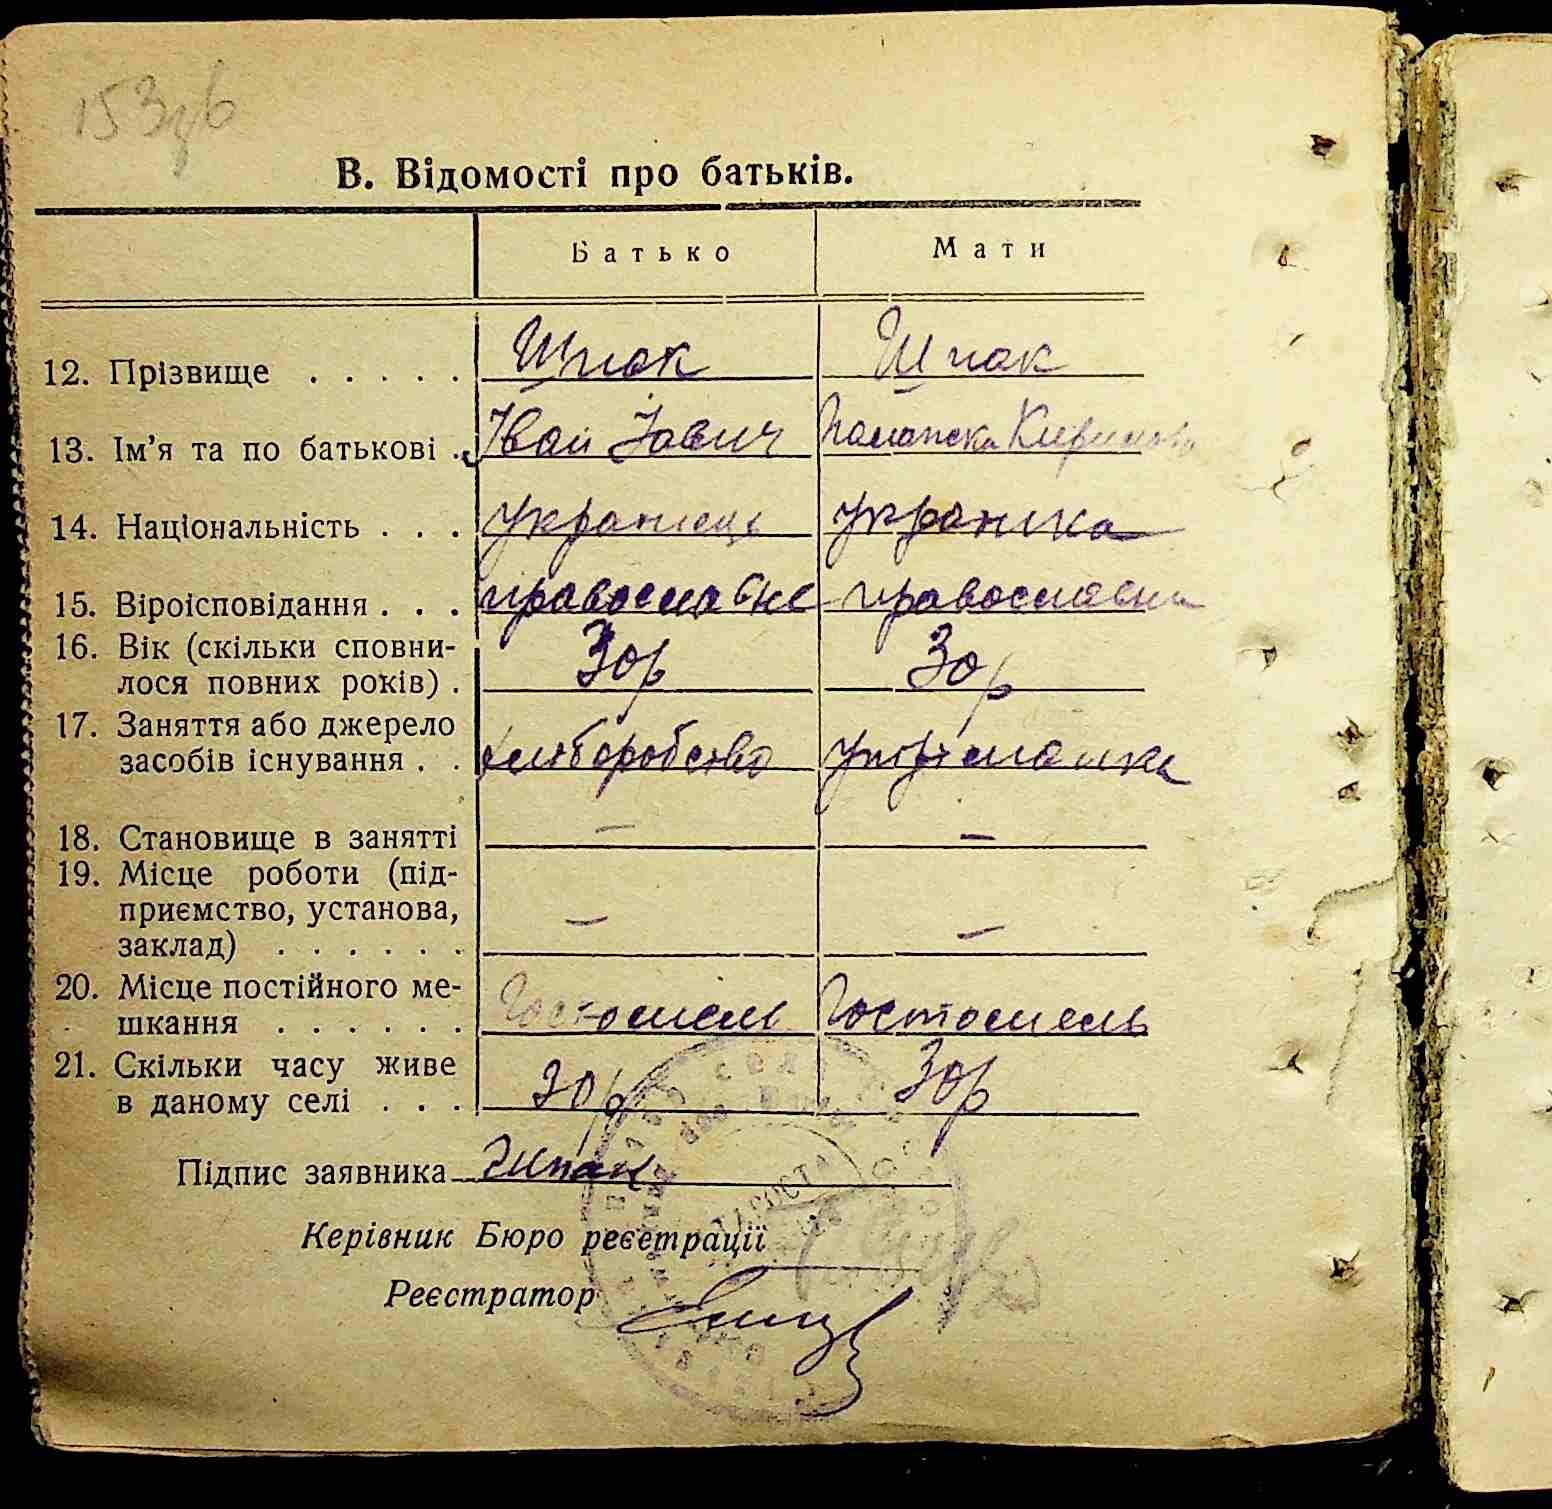 153
В. Відомості про батьків.
Батько Мати
12. Прізвище . . . . . Шпак Шпак
13. Ім'я та по батькові . Іван
14. Національність . . . Українець Українка
15. Віроісповідання . . . православне православна
16. Вік (скільки сповни-
лося повних років) . 30 р 30 р
17. Заняття або джерело
засобів існування . . хліборобство утриманка
18. Становище в занятті – –
19. Місце роботи (під-
приємство, установа,
заклад) . . . . . . – –
20. Місце постійного ме-
шкання . . . . . . Гостомель Гостомель
21. Скільки часу живе
в даному селі . . . 30 р 30 р
Підпис заявника Шпак
Керівник Бюро реєстрації
Реєстратор